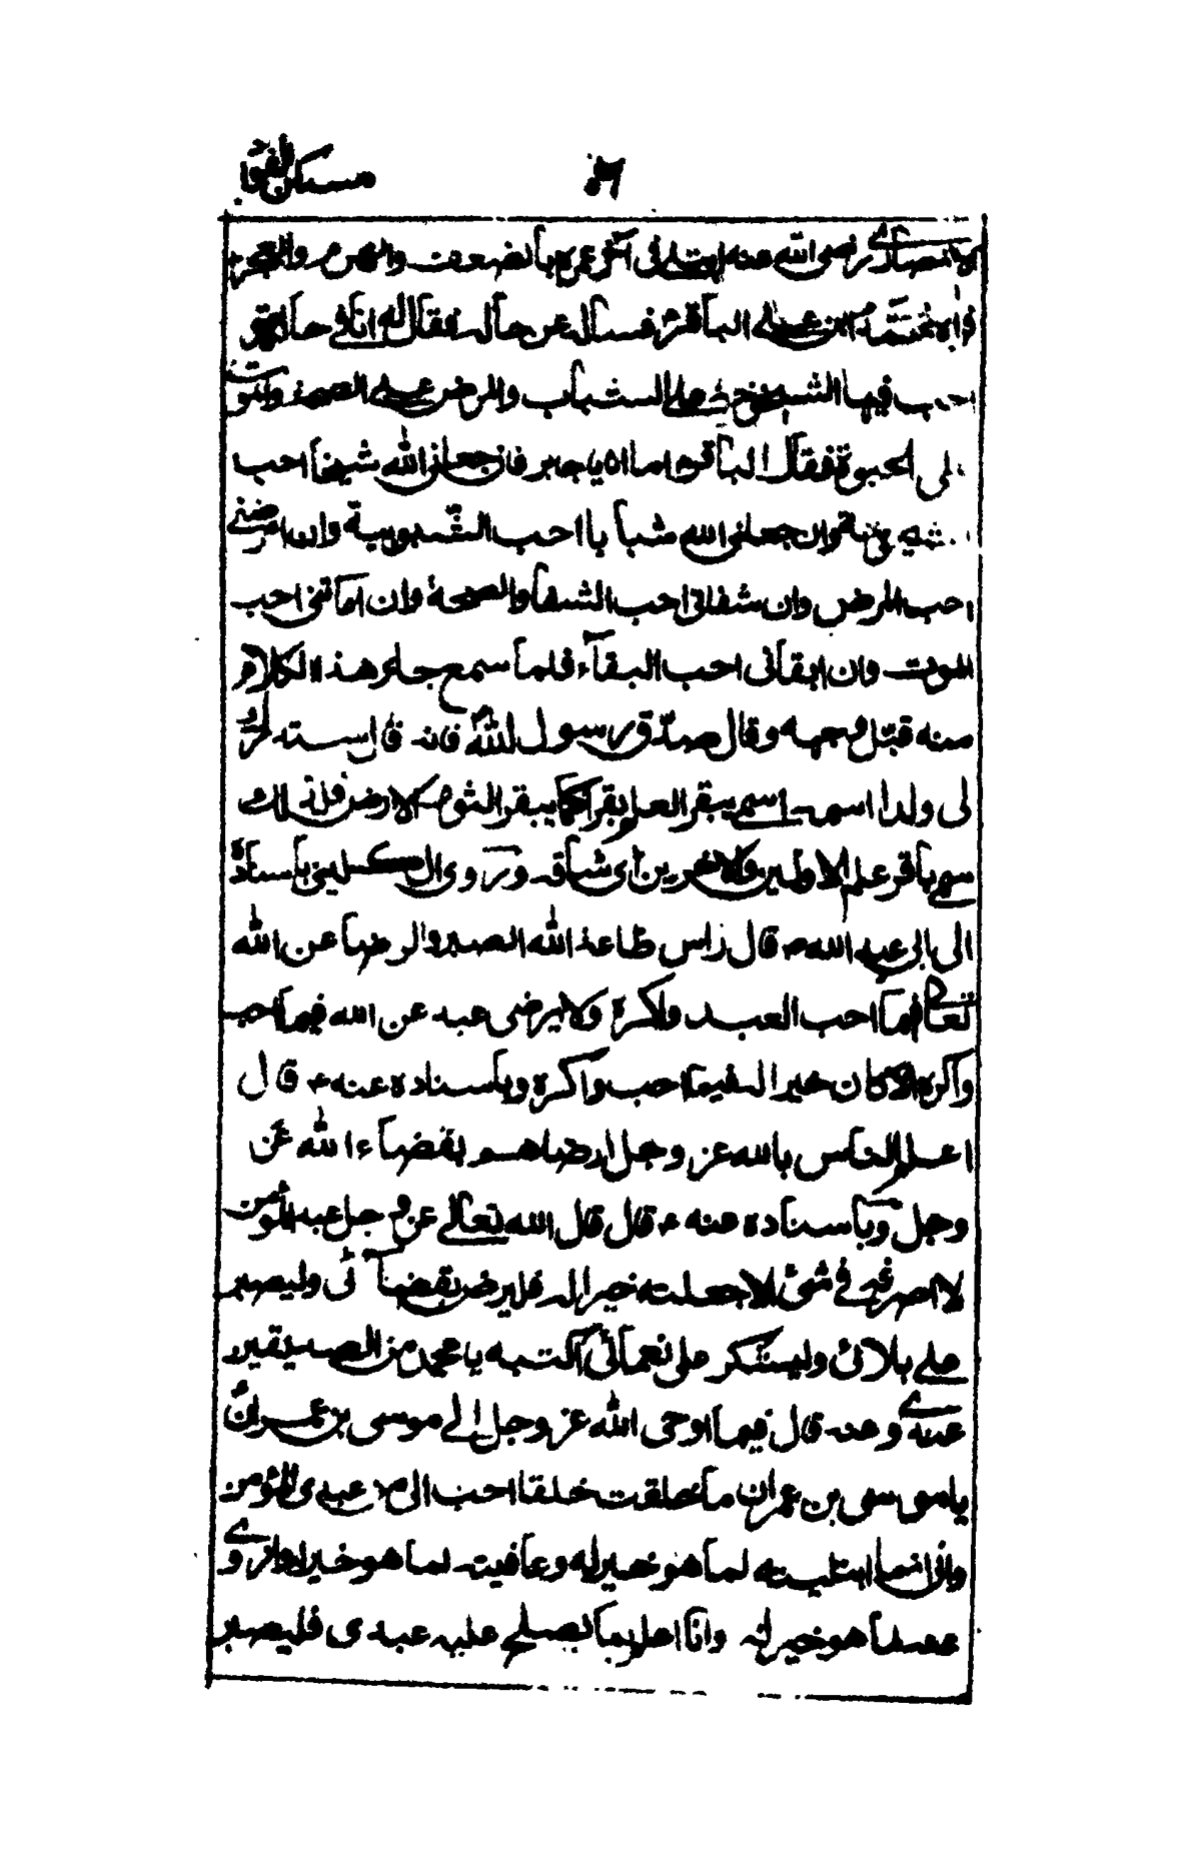 مسكن الفؤاد
الانصاري رضى الله عنه ابتلى فى آخر عمره بالضعف والهرم والعجز
فراه محمد ابن على الباقر فساله عن حاله فقال له انا فى حالة
احب فيها الشيخوخة على الشباب والمرض على الصحة والموت
على الحيوة فقال الباقر اما انا يا جابر فان جعلنى الله شيخا احب
الشيخوخة وان جعلنى الله شبابا احب الشبوبية وان امرضنى
احب المرض وان شفانى احب الشفا والصحة وان اماتنى احب
الموت وان ابقانى احب البقآء فلما سمع جابر هذا الكلام
منه قبّل وجهه وقال صدق رسول الله فانه قال ستدرك
لى ولدا اسمه اسمى يبقر العلم بقرا كما يبقر الثور الارض فلذلك
سمى باقر علم الاولين والاخرين اى شاقه وروى الكلينى باسناده
الى ابى عبد الله ع قال راس طاعة الله الصبر والرضا عن الله
تعالى فيما احب العبد واكره ولا يرضى عبد عن الله فيما احب
واكره الا كان خيرا له فيما احب واكره وباسناده عنه ع قال
اعلم الناس بالله عز وجل ارضاهم بقضاء الله عز
وجل وباسناده عنه ع قال قال الله تعالى عز و جل عبدى المؤمن
لا اصرفه فى شئ الا جعلته خيرا له فليرض بقضائى وليصبر
على بلائى وليشكر على نعمائى اكتبه يا محمد من الصديقين
عندى وعنه قال فيما اوحى الله عز وجل الى موسى بن عمران
يا موسى بن عمران ما خلقت خلقا احب الى من عبدى المؤمن
وانى انما ابتليته لما هو خير له وعافيته لما هو خير له وازوى
عنه لما هو خير له وانا اعلم بما يصلح عليه عبدى فليصبر